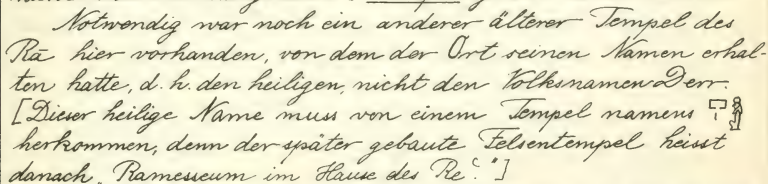 Notwendig war noch ein anderer älterer Tempel des
Rā hier vorhanden, von dem der Ort seinen Namen erhal-
ten hatte, d. h. den heiligen, nicht den Volksnamen Derr.
[Dieser heilige Name muss von einem Tempel namens 𓉐𓏤𓁛
herkommen, denn der später gebaute Felsentempel heisst
danach „Ramesseum im Hause des Reꜥ."]